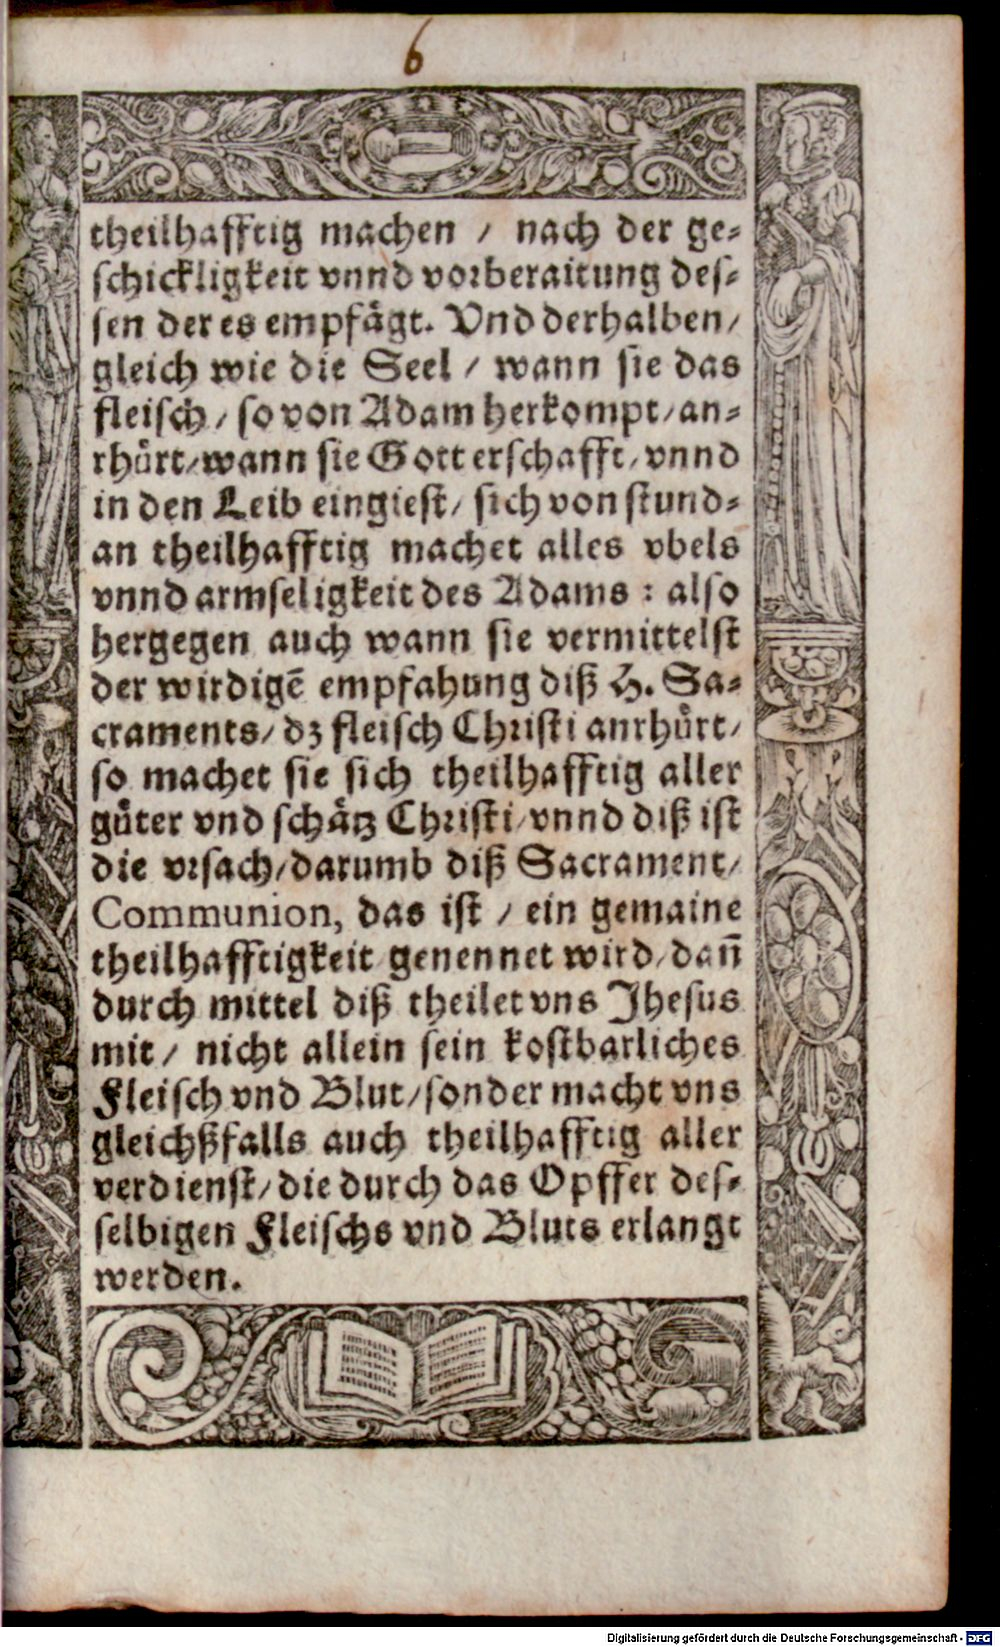 6
theilhafftig machen / nach der ge⸗
schickligkeit vnnd vorberaitung des⸗
sen der es empfägt. Vnd derhalben/
gleich wie die Seel / wann sie das
fleisch / so von Adam herkompt / an⸗
rhürt / wann sie Gott erschafft / vnnd
in den Leib eingiest / sich von stund⸗
an theilhafftig machet alles vbels
vnnd armseligkeit des Adams : also
hergegen auch wann sie vermittelst
der wirdigē empfahung diß H. Sa⸗
craments / dz fleisch Christi anrhůrt /
so machet sie sich theilhafftig aller
gůter vnd schätz Christi / vnnd diß ist
die vrsach / darumb diß Sacrament /
Communion, das ist / ein gemaine
theilhafftigkeit genennet wird / dañ
durch mittel diß theilet vns Jhesus
mit / nicht allein sein kostbarliches
Fleisch vnd Blut / sonder macht vns
gleichßfalls auch theilhafftig aller
verdienst / die durch das Opffer des⸗
selbigen Fleischs vnd Bluts erlangt
werden.
Digitalisierung gefördert durch die Deutsche Forschungsgemeinschaft - DFG